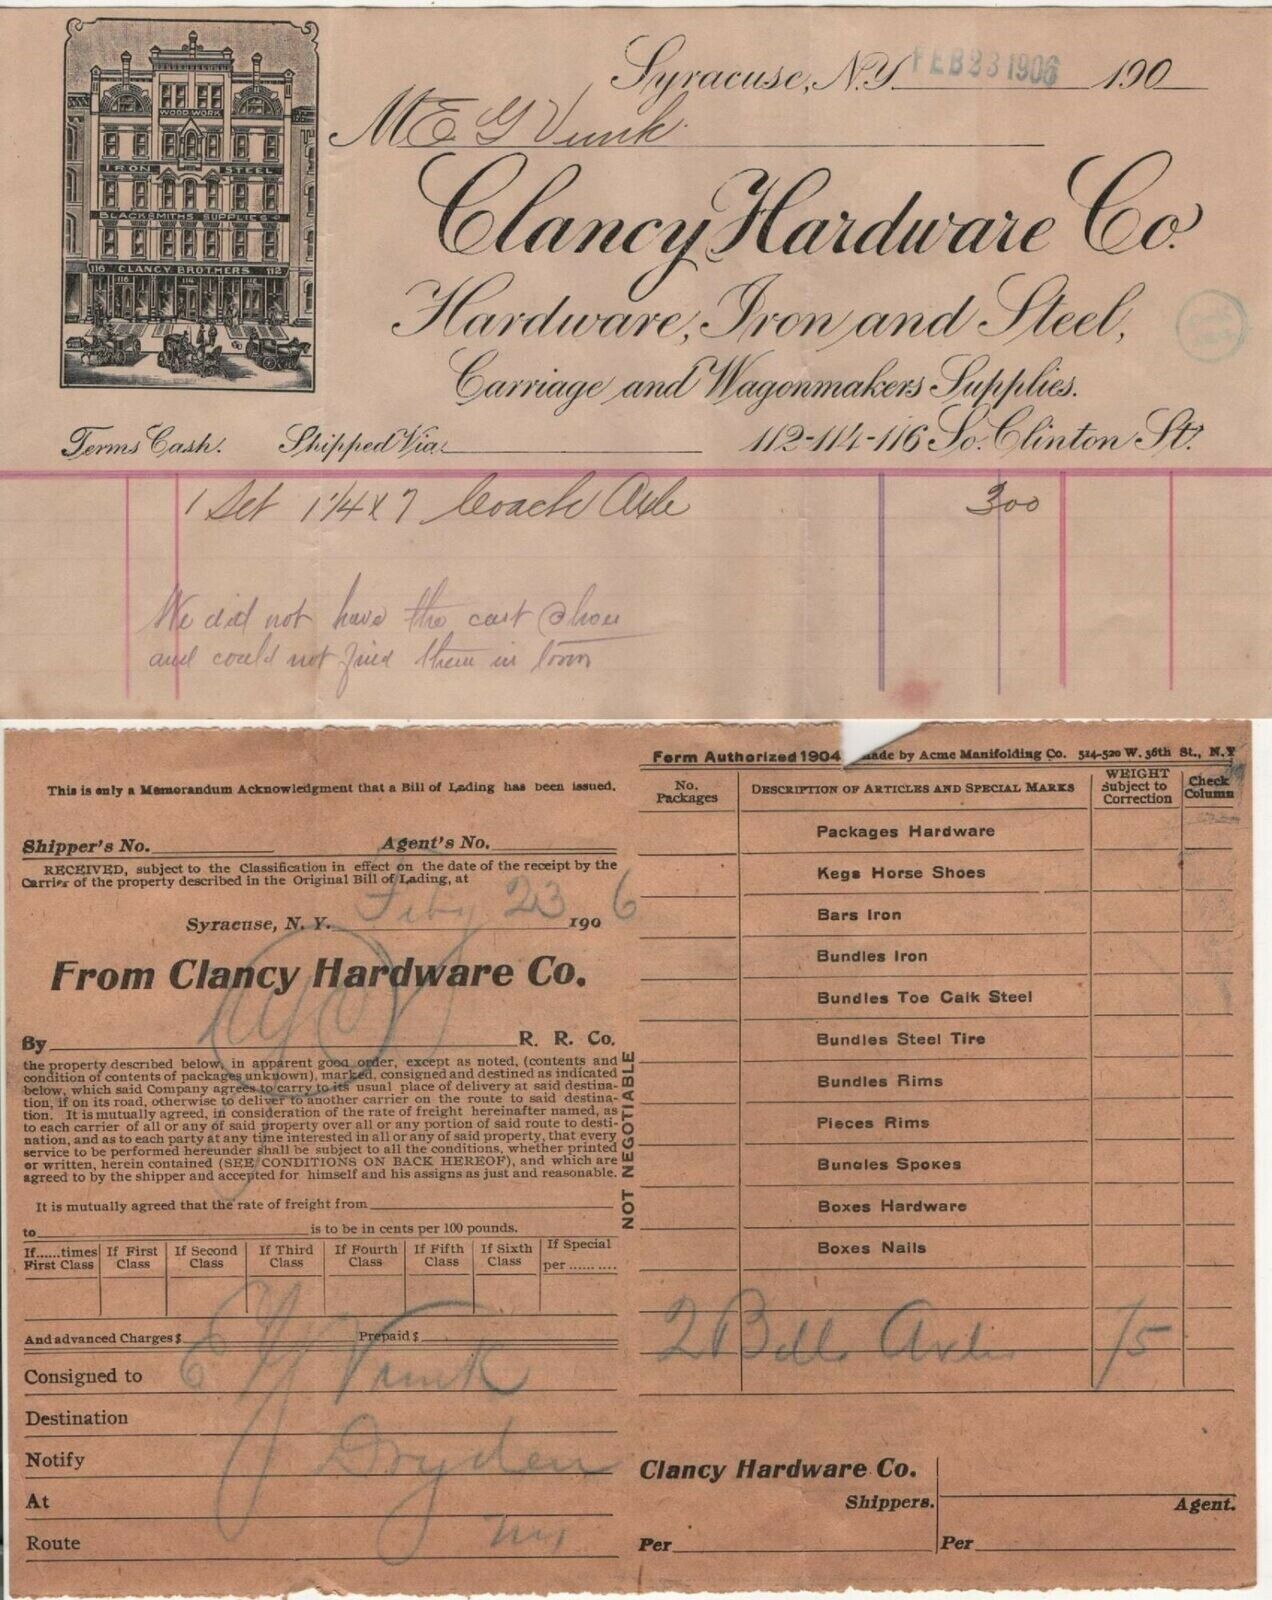 Syracuse, N.Y. FEB 23 1906 190
M E G Vunk
WOOD WORK
IRON STEEL
BLACKSMITHS SUPPLIES
116 CLANCY BROTHERS 112
116 116 114
Clancy Hardware Co.
Hardware, Iron and Steel,
Carriage and Wagonmakers Supplies.
Terms Cash. Shipped Via 112-114-116 So. Clinton St.
1 Set 1 1/4 x 7 Coach Axle 300
We did not have the cast shoes
and could not find them in town
This is only a Memorandum Acknowledgment that a Bill of Lading has been issued.
Shipper's No. Agent's No.
RECEIVED, subject to the Classification in effect on the date of the receipt by the
Carrier of the property described in the Original Bill of Lading, at
Syracuse, N. Y. Feby 23 190 6
From Clancy Hardware Co.
By R. R. Co.
the property described below, in apparent good order, except as noted, (contents and
condition of contents of packages unknown), marked, consigned and destined as indicated
below, which said Company agrees to carry to its usual place of delivery at said destina-
tion, if on its road, otherwise to deliver to another carrier on the route to said destina-
tion. It is mutually agreed, in consideration of the rate of freight hereinafter named, as
to each carrier of all or any of said property over all or any portion of said route to desti-
nation, and as to each party at any time interested in all or any of said property, that every
service to be performed hereunder shall be subject to all the conditions, whether printed
or written, herein contained (SEE CONDITIONS ON BACK HEREOF), and which are
agreed to by the shipper and accepted for himself and his assigns as just and reasonable.
NOT NEGOTIABLE
It is mutually agreed that the rate of freight from
to is to be in cents per 100 pounds.
If......times First Class
If First Class
If Second Class
If Third Class
If Fourth Class
If Fifth Class
If Sixth Class
If Special per..........
And advanced Charges $ Prepaid $
Consigned to E G Vunk
Destination
Notify Dryden
At
Route NY
Form Authorized 1904 made by Acme Manifolding Co. 514-520 W. 36th St., N.Y
No. Packages
DESCRIPTION OF ARTICLES AND SPECIAL MARKS
WEIGHT Subject to Correction
Check Column
Packages Hardware
Kegs Horse Shoes
Bars Iron
Bundles Iron
Bundles Toe Calk Steel
Bundles Steel Tire
Bundles Rims
Pieces Rims
Bundles Spokes
Boxes Hardware
Boxes Nails
2 Bdls Axles 75
Clancy Hardware Co.
Shippers. Agent.
Per Per